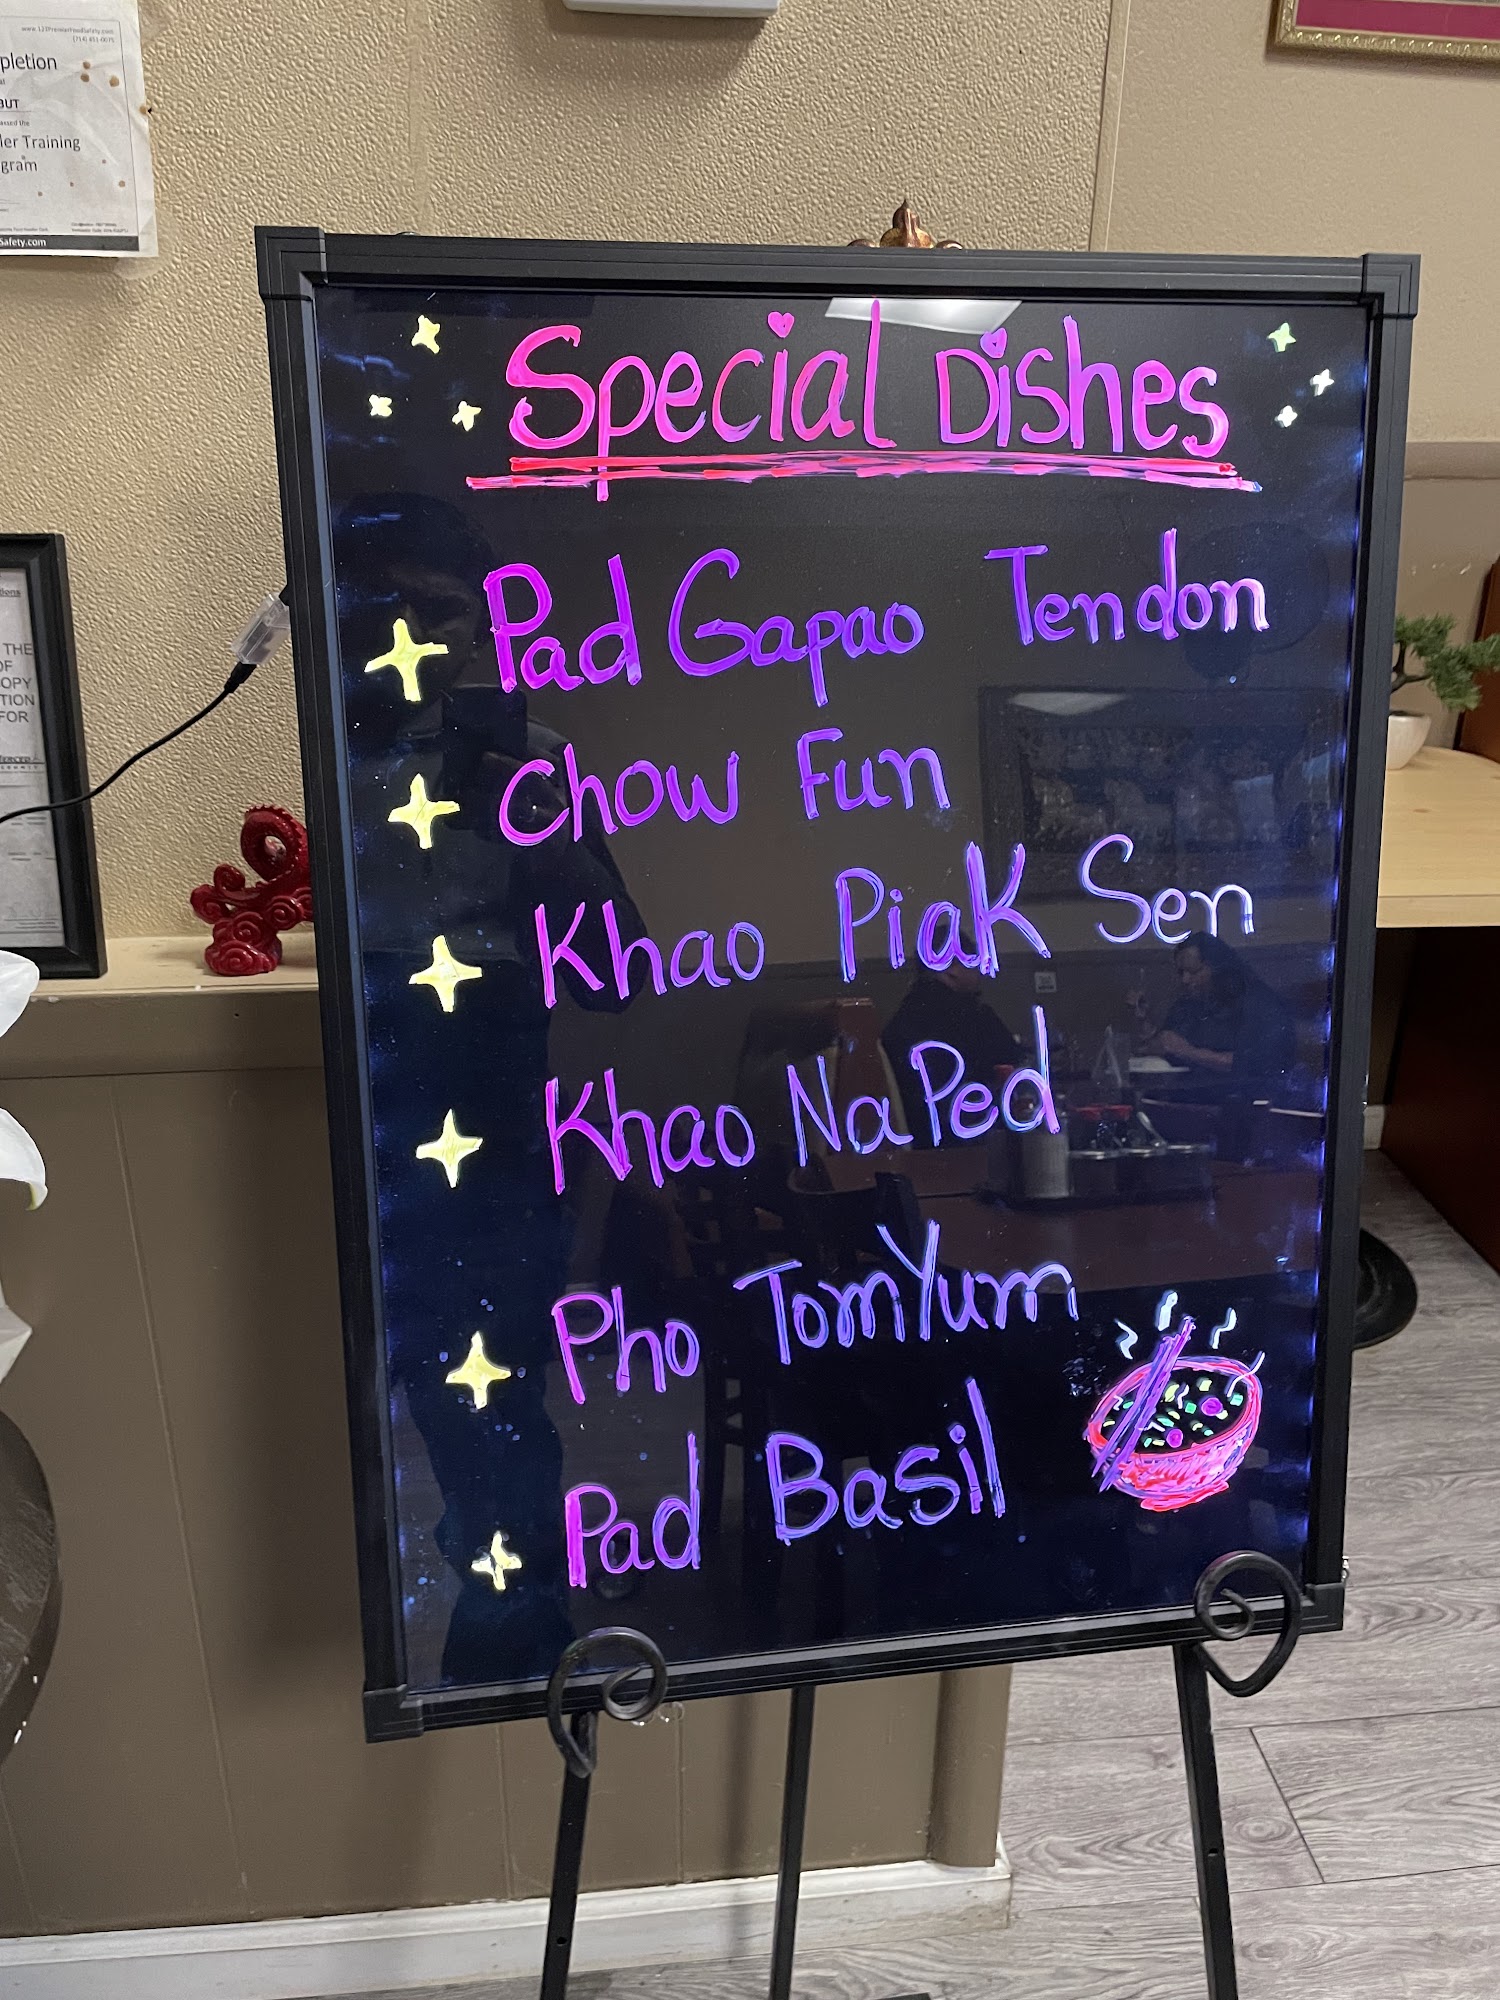 www.123PremierFoodSafety.com
(714) 451-0075
pletion
BUT
assed the
ler Training
gram
Safety.com
THE
OF
OPY
TION
FOR
Special Dishes
Pad Gapao Tendon
Chow Fun
Khao Piak Sen
Khao Na Ped
Pho Tom Yum
Pad Basil